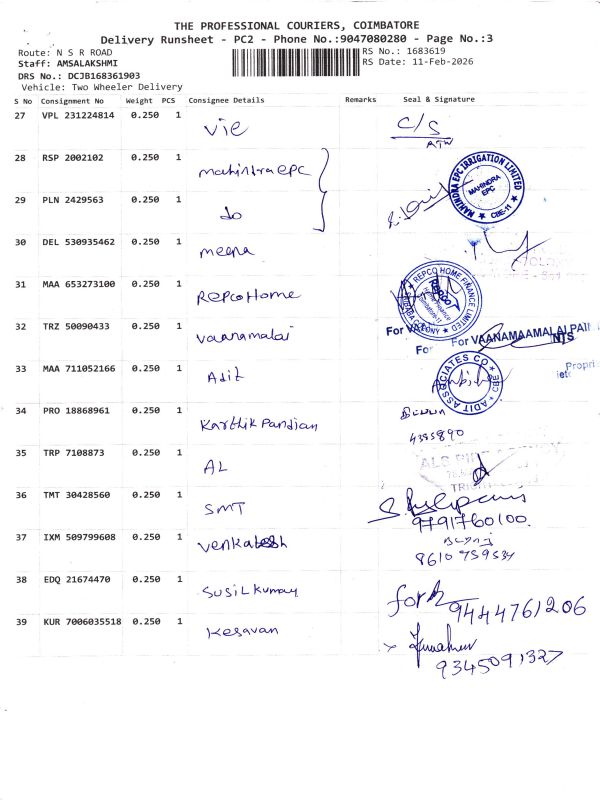 THE PROFESSIONAL COURIERS, COIMBATORE
Delivery Runsheet - PC2 - Phone No.:9047080280 - Page No.:3
Route: N S R ROAD
RS No.: 1683619
Staff: AMSALAKSHMI
RS Date: 11-Feb-2026
DRS No.: DCJB168361903
Vehicle: Two Wheeler Delivery
S No Consignment No Weight PCS Consignee Details Remarks Seal & Signature
27 VPL 231224814 0.250 1 Vie C/S
28 RSP 2002102 0.250 1 mahindra epc
MAHINDRA EPC IRRIGATION LIMITED
MAHINDRA EPC
CBE-11
29 PLN 2429563 0.250 1 do
30 DEL 530935462 0.250 1 meena
31 MAA 653273100 0.250 1 Repco Home
REPCO HOME FINANCE LIMITED
32 TRZ 50090433 0.250 1 vaanamalai
For VAANAMAAMALAI PAIN
33 MAA 711052166 0.250 1 Adit
ADIT ASSOCIATES CO
34 PRO 18868961 0.250 1 Karthik Pandian
4385890
35 TRP 7108873 0.250 1 AL
36 TMT 30428560 0.250 1 SMT
9791760100
37 IXM 509799608 0.250 1 venkatesh
8610 759534
38 EDQ 21674470 0.250 1 Susil kumar
9444761206
39 KUR 7006035518 0.250 1 Kesavan
9345091327